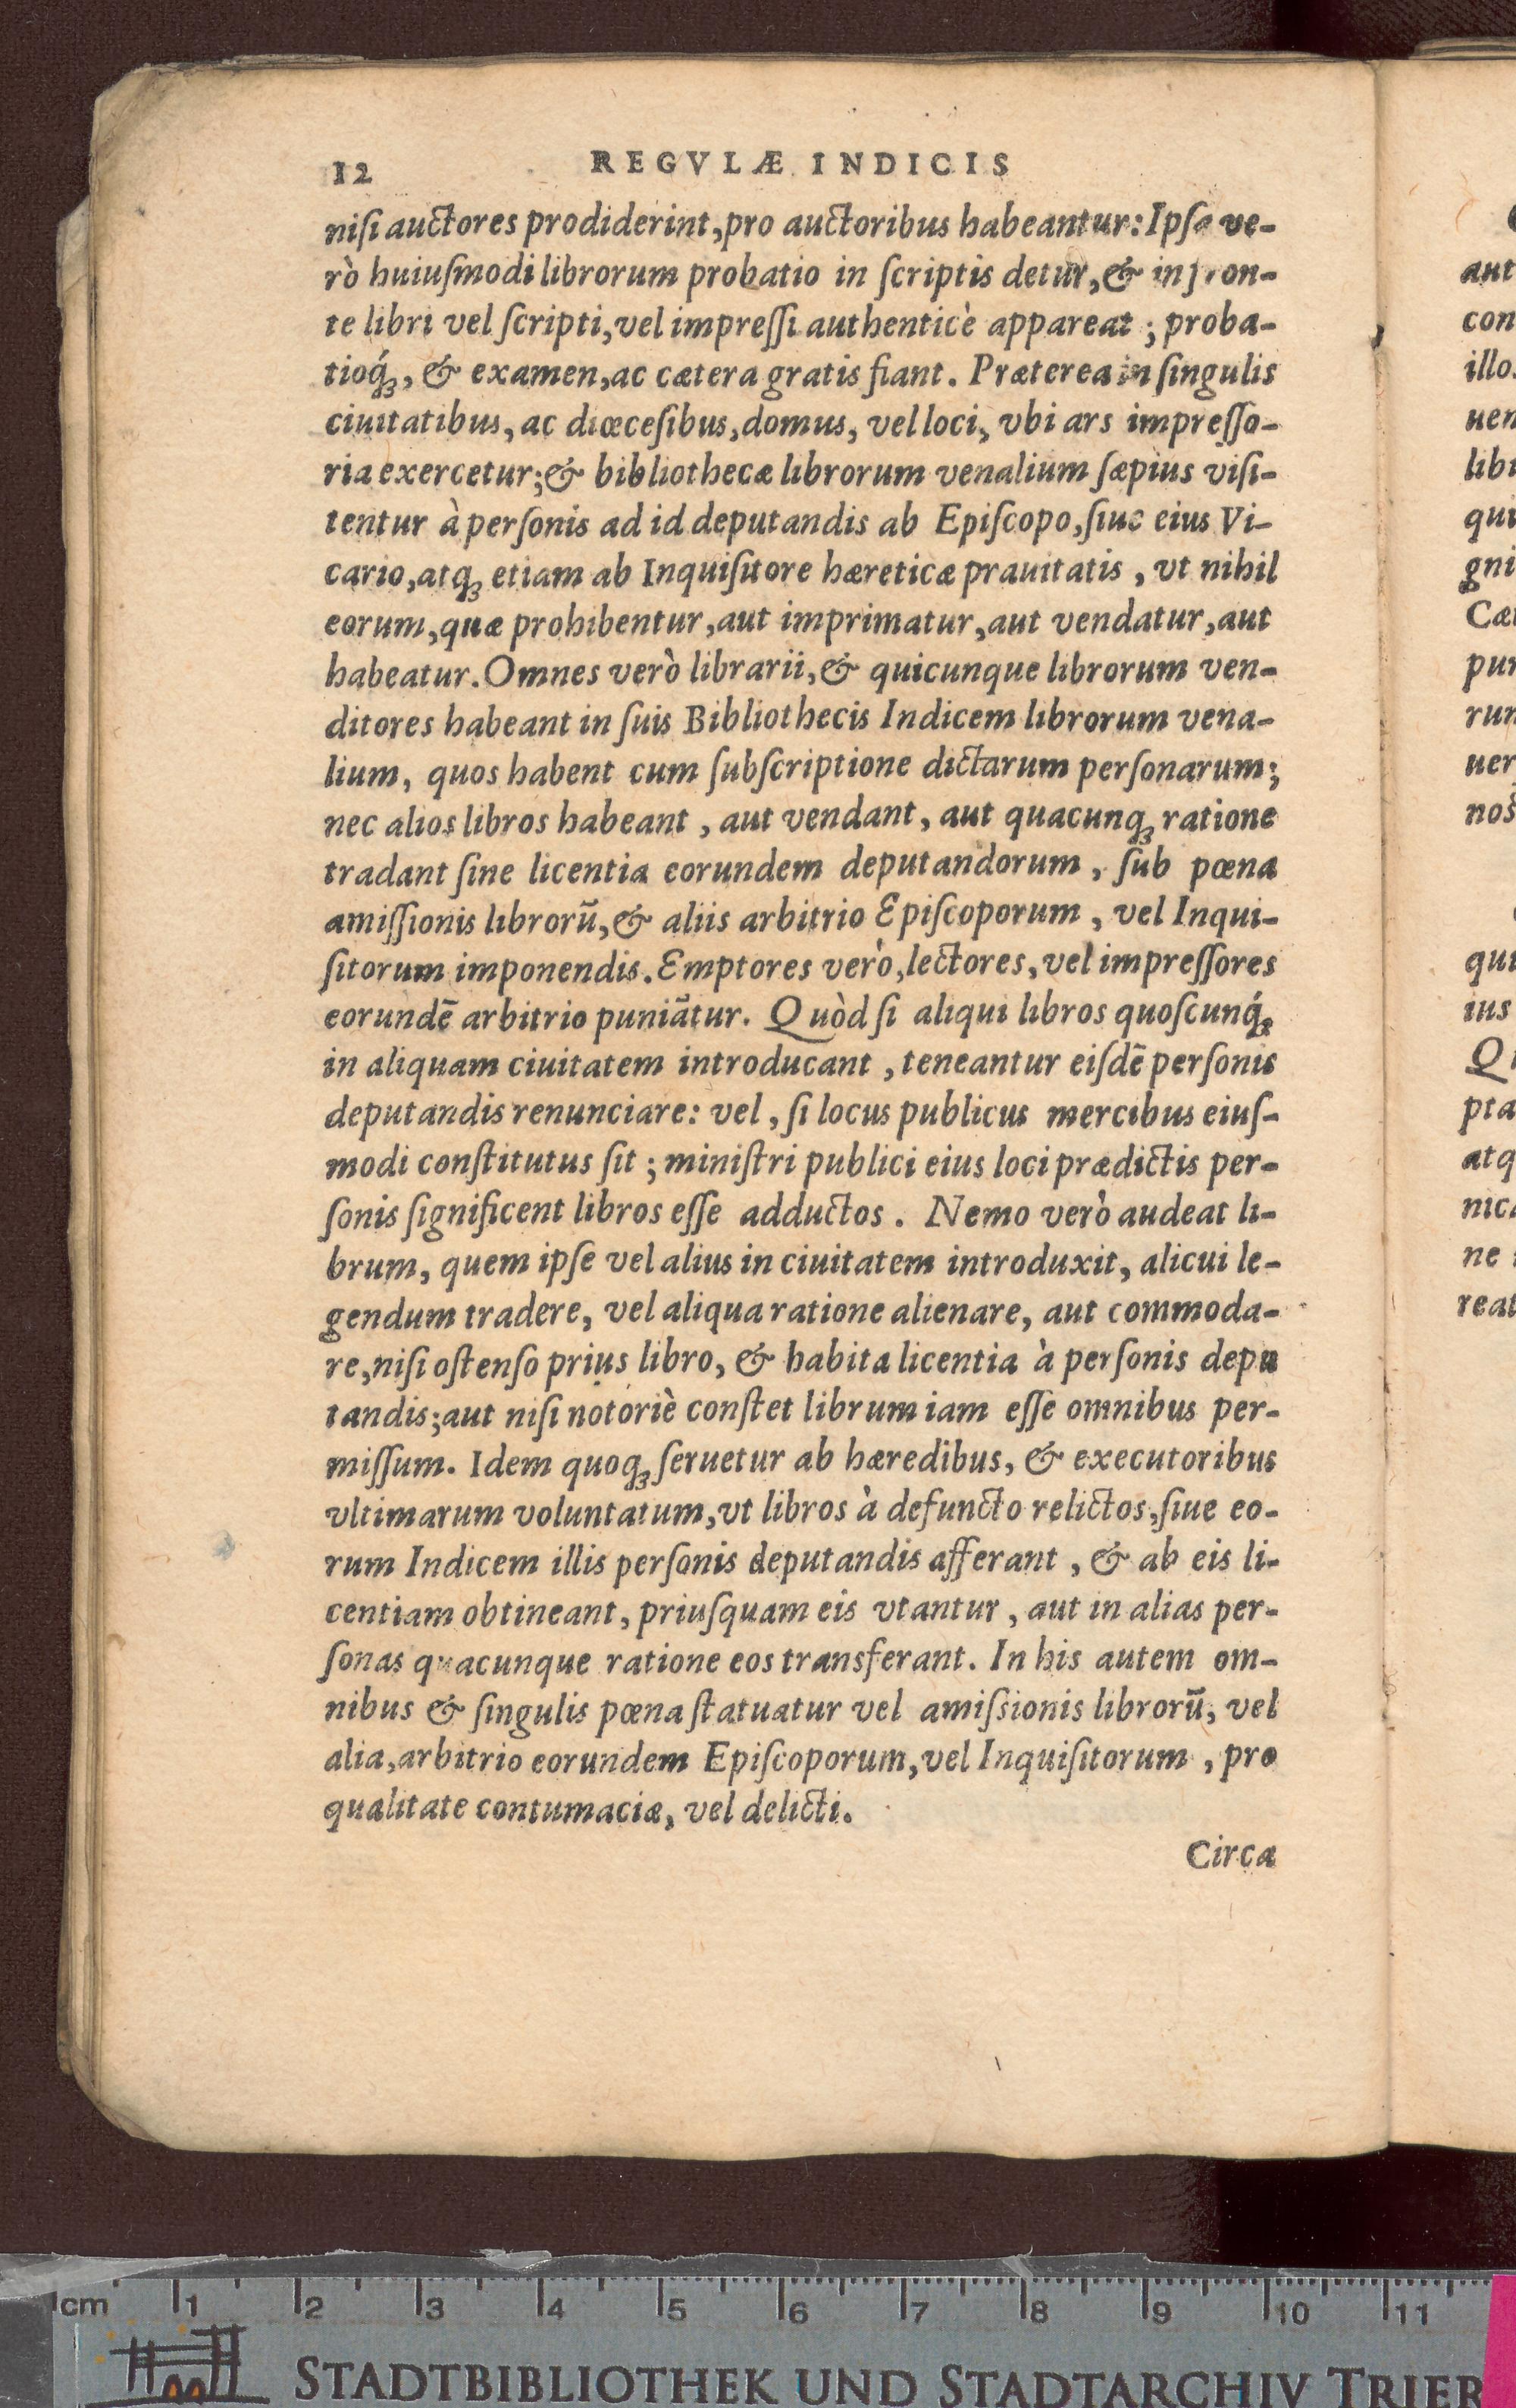 12 REGVLÆ INDICIS
niſi auctores prodiderint, pro auctoribus habeantur: Ipſa ve-
rò huiuſmodi librorum probatio in ſcriptis detur, & in fron-
te libri vel ſcripti, vel impreſſi authenticè appareat; proba-
tioq́ꝫ, & examen, ac cætera gratis fiant. Præterea in ſingulis
ciuitatibus, ac diœceſibus, domus, vel loci, vbi ars impreſſo-
ria exercetur; & bibliothecæ librorum venalium ſæpius viſi-
tentur à perſonis ad id deputandis ab Epiſcopo, ſiue eius Vi-
cario, atqꝫ etiam ab Inquiſitore hæreticæ prauitatis, vt nihil
eorum, quæ prohibentur, aut imprimatur, aut vendatur, aut
habeatur. Omnes verò librarii, & quicunque librorum ven-
ditores habeant in ſuis Bibliothecis Indicem librorum vena-
lium, quos habent cum ſubſcriptione dictarum perſonarum;
nec alios libros habeant, aut vendant, aut quacunqꝫ ratione
tradant ſine licentia eorundem deputandorum, ſub pœna
amiſſionis librorū, & aliis arbitrio Epiſcoporum, vel Inqui-
ſitorum imponendis. Emptores verò, lectores, vel impreſſores
eorundē arbitrio puniātur. Quòd ſi aliqui libros quoſcunq́ꝫ
in aliquam ciuitatem introducant, teneantur eiſdē perſonis
deputandis renunciare: vel, ſi locus publicus mercibus eiuſ-
modi conſtitutus ſit; miniſtri publici eius loci prædictis per-
ſonis ſignificent libros eſſe adductos. Nemo verò audeat li-
brum, quem ipſe vel alius in ciuitatem introduxit, alicui le-
gendum tradere, vel aliqua ratione alienare, aut commoda-
re, niſi oſtenſo prius libro, & habita licentia à perſonis depu
tandis; aut niſi notoriè conſtet librum iam eſſe omnibus per-
miſſum. Idem quoqꝫ ſeruetur ab hæredibus, & executoribus
vltimarum voluntatum, vt libros à defuncto relictos, ſiue eo-
rum Indicem illis perſonis deputandis afferant, & ab eis li-
centiam obtineant, priuſquam eis vtantur, aut in alias per-
ſonas quacunque ratione eos transferant. In his autem om-
nibus & ſingulis pœna ſtatuatur vel amiſsionis librorū, vel
alia, arbitrio eorundem Epiſcoporum, vel Inquiſitorum, pro
qualitate contumaciæ, vel delicti.
Circa
aut
con
illo
uen
libi
qui
gni
Cæ
pur
run
uer
nos
qui
ius
Q
pta
atq
nic
ne
reat
cm 1 2 3 4 5 6 7 8 9 10 11
STADTBIBLIOTHEK UND STADTARCHIV TRIER